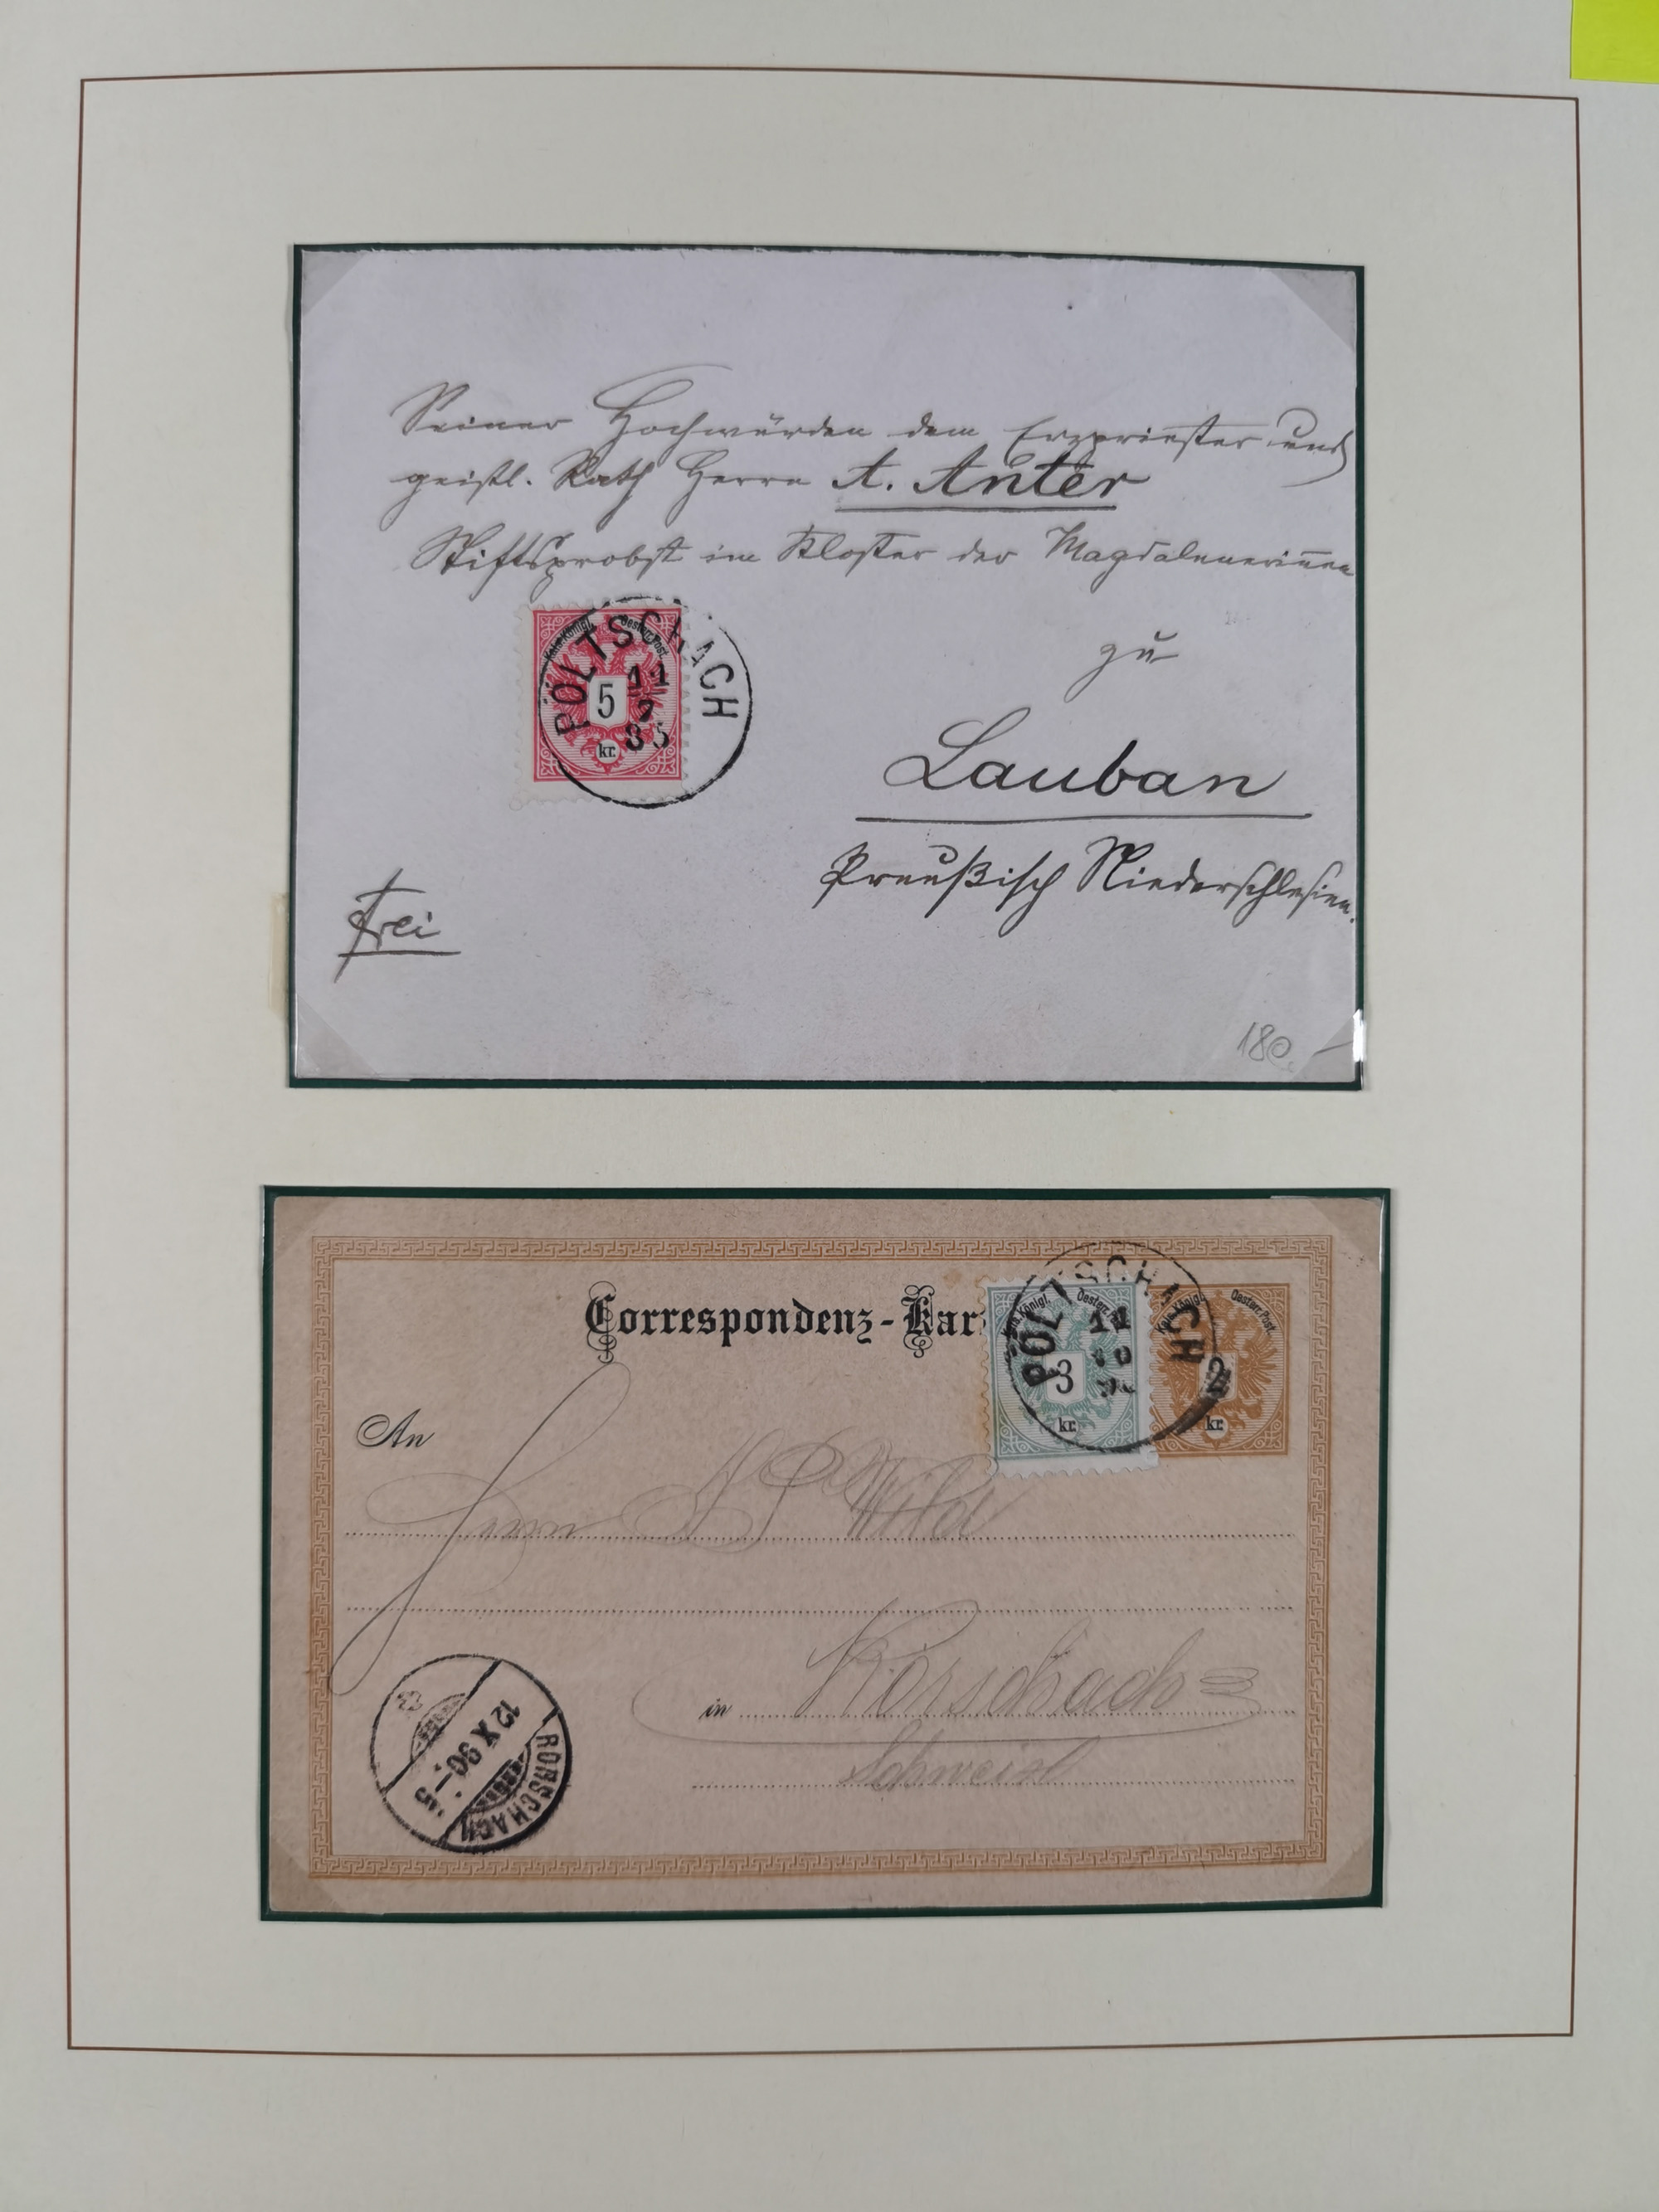 Seiner Hochwürden dem Erzpriester und
geistl. Rath Herrn A. Anter
Stiftsprobst im Kloster der Magdalenerinnen
zu
Lauban
Preußisch Niederschlesien.
Frei
PÖLTSCHACH
11
9
85
Kais. Königl. Oesterr. Post.
5
kr.
180
Correspondenz-Kar
PÖLTSCHACH
11
10
Kais. Königl. Oesterr. Post.
3
kr.
Kais. Königl. Oesterr. Post.
2
kr.
An
Herrn Wild
in Rorschach
Schweiz
RORSCHACH
12 X 90